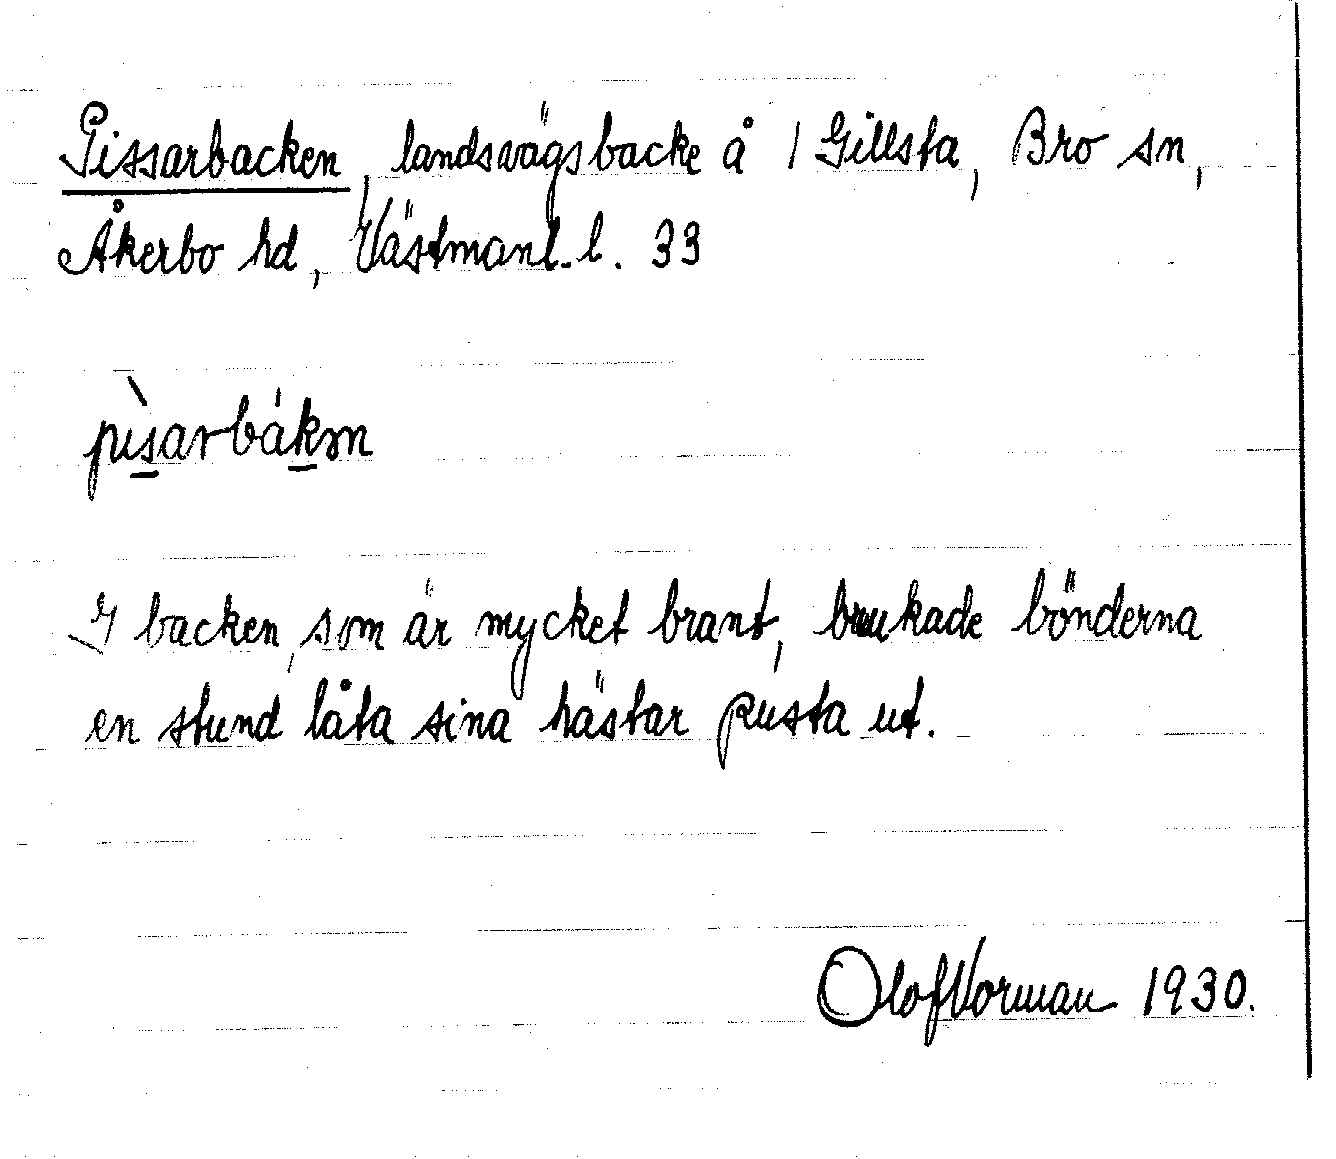 Pissarbacken, landsvägsbacke å 1 Gillsta, Bro sn,
Åkerbo hd, Västmanl. l. 33
pìsarbákən
I backen, som är mycket brant, brukade bönderna
en stund låta sina hästar pusta ut.
Olof Vorman 1930.